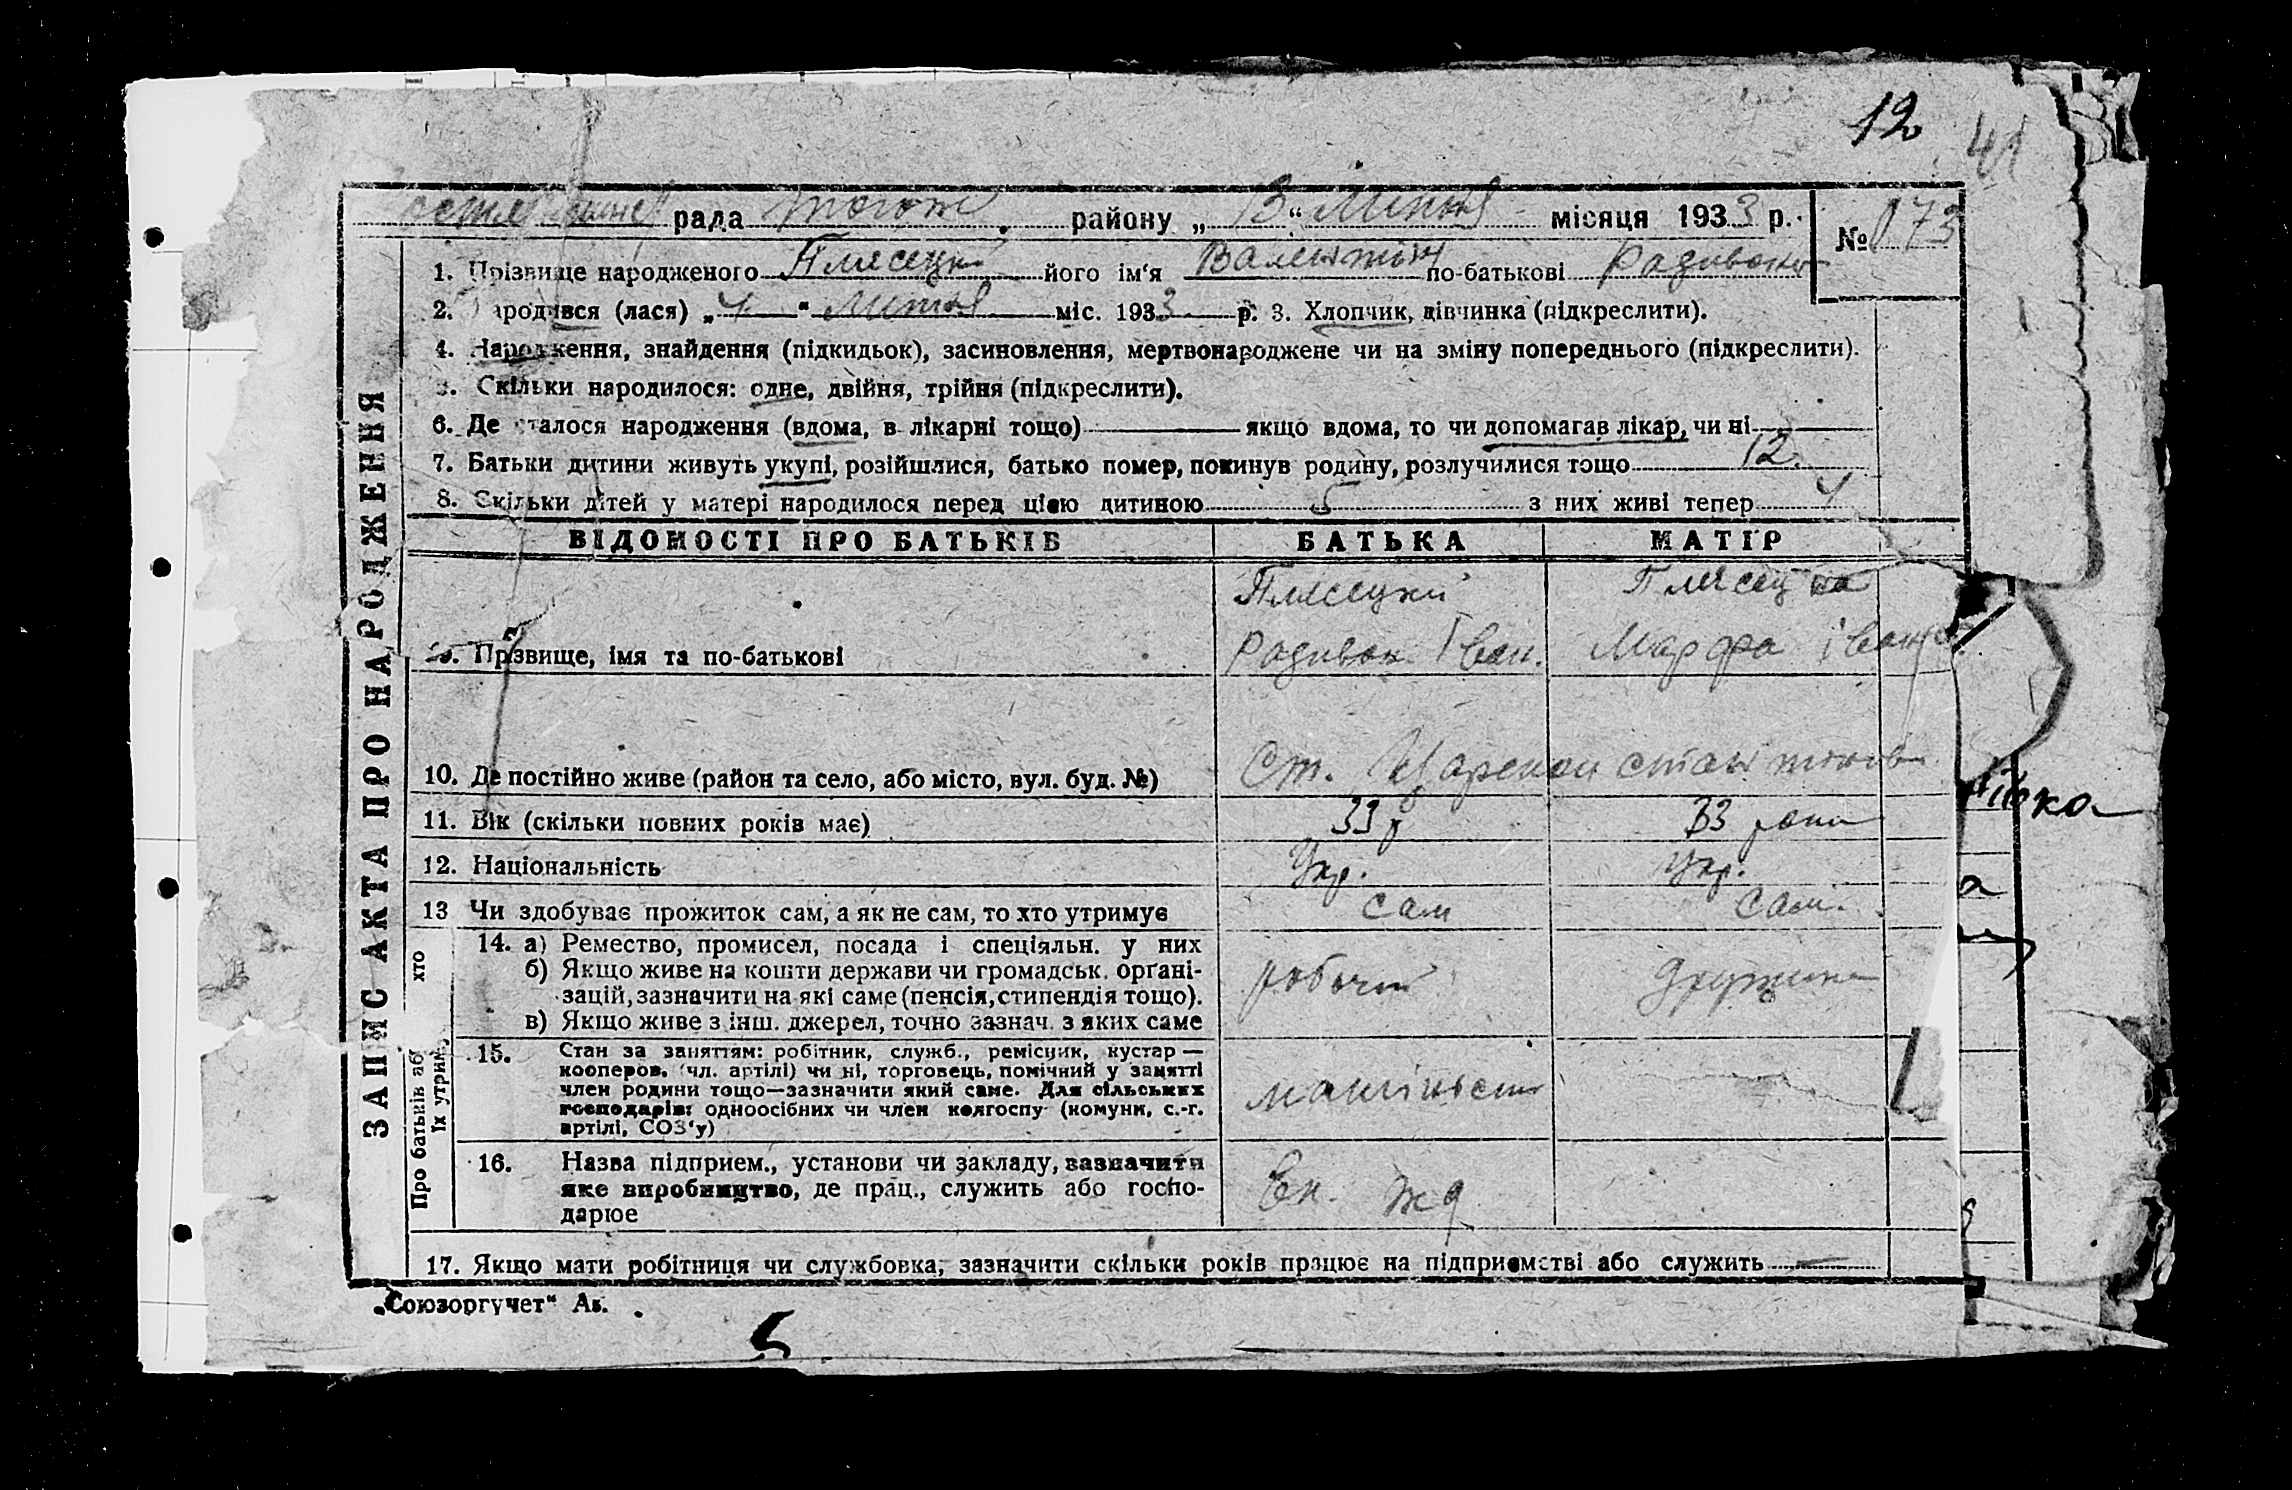 12
41
рада тогож району „ 8 “ липня місяця 1933 р.
№ 73
1. Прізвище народженого Плясецкий його ім‘я Валентин по-батькові Радивонов
2. Народився (лася) „ 4 “ липня міс. 1933 р. 3. Хлопчик, дівчинка (підкреслити).
4. Народження, знайдення (підкидьок), засиновлення, мертвонароджене чи на зміну попереднього (підкреслити).
5. Скільки народилося: одне, двійня, трійня (підкреслити).
6. Де сталося народження (вдома, в лікарні тощо) якщо вдома, то чи допомагав лікар, чи ні
7. Батьки дитини живуть укупі, розійшлися, батько помер, покинув родину, розлучилися тощо 12.
8. Скільки дітей у матері народилося перед цією дитиною 5 з них живі тепер 4
ВІДОМОСТІ ПРО БАТЬКІВ БАТЬКА МАТІР
Плясецкий Плясецка
9. Прізвище, імя та по-батькові Радивон Іван. Марфа Іван
10. Де постійно живе (район та село, або місто, вул. буд. №) Ст.
11. Вік (скільки повних років має) 33 р 33 роки
12. Національність Укр. Укр.
13 Чи здобуває прожиток сам, а як не сам, то хто утримує сам сам.
14. а) Ремество, промисел, посада і спеціяльн. у них
б) Якщо живе на кошти держави чи громадськ. орґані-
зацій, зазначити на які саме (пенсія, стипендія тощо). робочий дружина
в) Якщо живе з інш. джерел, точно зазнач. з яких саме
15. Стан за заняттям: робітник, служб., ремісник, кустар —
кооперов. (чл. артілі) чи ні, торговець, помічний у занятті
член родини тощо—зазначити який саме. Для сільських
господарів: одноосібних чи член колгоспу (комуни, с.-г.
артілі, СОЗ‘у)
16. Назва підприем., установи чи закладу, зазначити
яке виробництво, де прац., служить або госпо- жд
дарює
17. Якщо мати робітниця чи службовка, зазначити скільки років працює на підприємстві або служить
ЗАПИС АКТА ПРО НАРОДЖЕННЯ
Про батьків або хто
їх утрим.
„Союзоргучет“ Ак.
5